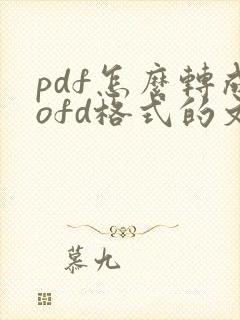 pdf怎麽轉成
ofd格式的文
慕九